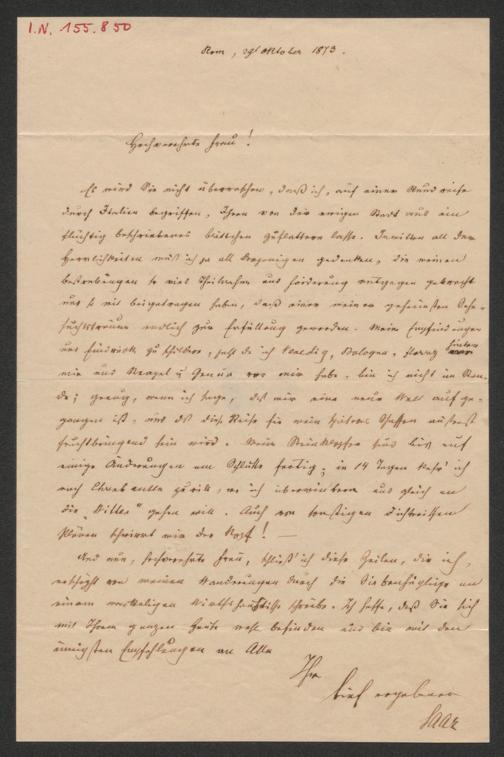 I.N. 155.850
Rom, 29t Oktober 1873.
Hochverehrte Frau!
Es wird Sie nicht überraschen, daß ich, auf einer Rundreise
durch Italien begriffen, Ihnen von der ewigen Stadt aus ein
flüchtig beschriebenes Blättchen zuflattern lasse. Inmitten all der
Herrlichkeiten muß ich ja all derjenigen gedenken, die meinen
Bestrebungen so viel Theilnahme und Förderung entgegen gebracht
und so viel beigetragen haben, daß einer meiner geheimsten Sehn-
suchtsträume endlich zur Erfüllung geworden. Meine Empfindungen
und Eindrücke zu schildern, jetzt da ich Venedig, Bologna, Florenz hinter
mir und Neapel u Genua vor mir habe, bin ich nicht im Stan-
de; genug, wenn ich sage, daß mir eine neue Welt aufge-
gangen ist, und daß diese Reise für mein weiteres Schaffen äußerst
fruchtbringend sein wird. Meine Steinklopfer sind bis auf
einige Änderungen am Schluße fertig; in 14 Tagen kehr' ich
nach zurück, wo ich überwintern und gleich an
die gehen will. Auch von sonstigen dichterischen
Plänen schwirrt mir der Kopf! —
Und nun, hochverehrte Frau, schließ' ich diese Zeilen, die ich,
erschöpft von meinen Wanderungen durch die Siebenhüglige an
einem wackeligen Wirthshaustische schreibe. Ich hoffe, daß Sie sich
mit Ihrem ganzen Hause wohl befinden und bin mit den
innigsten Empfehlungen an Alle
Ihr
tief ergebener
Saar